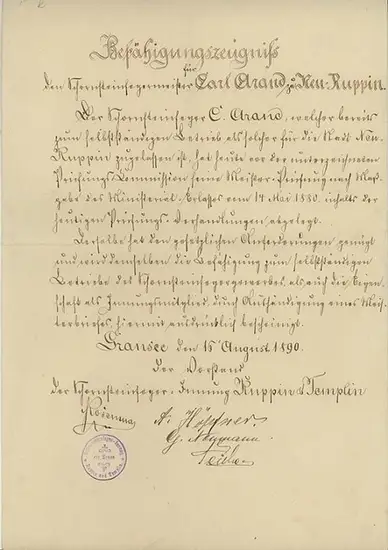 Befähigungszeugniß
für
den Schornsteinfegermeister Carl Arand zu Neu-Ruppin.
Der Schornsteinfeger C. Arand, welcher bereits
zum selbstständigen Betrieb als solcher für die Stadt Neu-
Ruppin zugelassen ist, hat heute vor der unterzeichneten
Prüfungs-Commission seine Meister-Prüfung nach Maß-
gabe des Ministerial-Erlasses vom 17 Mai 1880, inhalts der
heutigen Prüfungs-Verhandlungen abgelegt.
Derselbe hat den gesetzlichen Anforderungen genügt
und wird demselben die Befähigung zum selbstständigen
Betriebe des Schornsteinfegergewerbes, als auf die Eigen-
schaft als Innungsmitglied, durch Aushändigung eines Mei-
sterbriefes hiermit ausdrücklich bescheinigt.
Gransee den 15 August 1890.
Der Vorstand
der Schornsteinfeger-Innung Ruppin & Templin
A. Höppner
G. Neumann